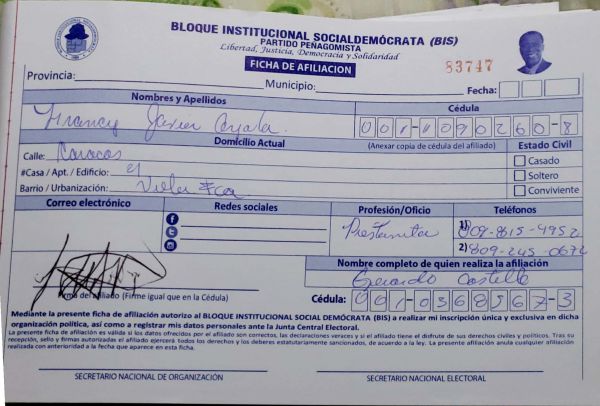 BLOQUE INSTITUCIONAL SOCIALDEMÓCRATA (BIS)
PARTIDO PEÑAGOMISTA
Libertad, Justicia, Democracia y Solidaridad
FICHA DE AFILIACION
83747
Provincia:
Municipio:
Fecha:
Nombres y Apellidos
Cédula
Francy Javier Ayala
001-1090260-8
Domicilio Actual
(Anexar copia de cédula del afiliado)
Estado Civil
Calle: Caracas
Casado
#Casa / Apt. / Edificio: 21
Soltero
Barrio / Urbanización: Villa
Conviviente
Correo electrónico
Redes sociales
Profesión/Oficio
Teléfonos
Prestamista
1) 809-815-4952
2) 809-245-0672
Nombre completo de quien realiza la afiliación
Gerardo Castillo
Firma del afiliado (Firme igual que en la Cédula)
Cédula: 001-0368567-3
Mediante la presente ficha de afiliación autorizo al BLOQUE INSTITUCIONAL SOCIAL DEMÓCRATA (BIS) a realizar mi inscripción única y exclusiva en dicha
organización política, así como a registrar mis datos personales ante la Junta Central Electoral.
La presente ficha de afiliación es valida si los datos ofrecidos por el afiliado son correctos, las declaraciones veraces y si el afiliado tiene el disfrute de sus derechos civiles y políticos. Tras su
recepción, sello y firmas autorizadas el afiliado ejercerá todos los derechos y los deberes estatutariamente sancionados, de acuerdo a la ley. La presente afiliación anula cualquier afiliación
realizada con anterioridad a la fecha que aparece en esta ficha.
SECRETARIO NACIONAL DE ORGANIZACIÓN
SECRETARIO NACIONAL ELECTORAL